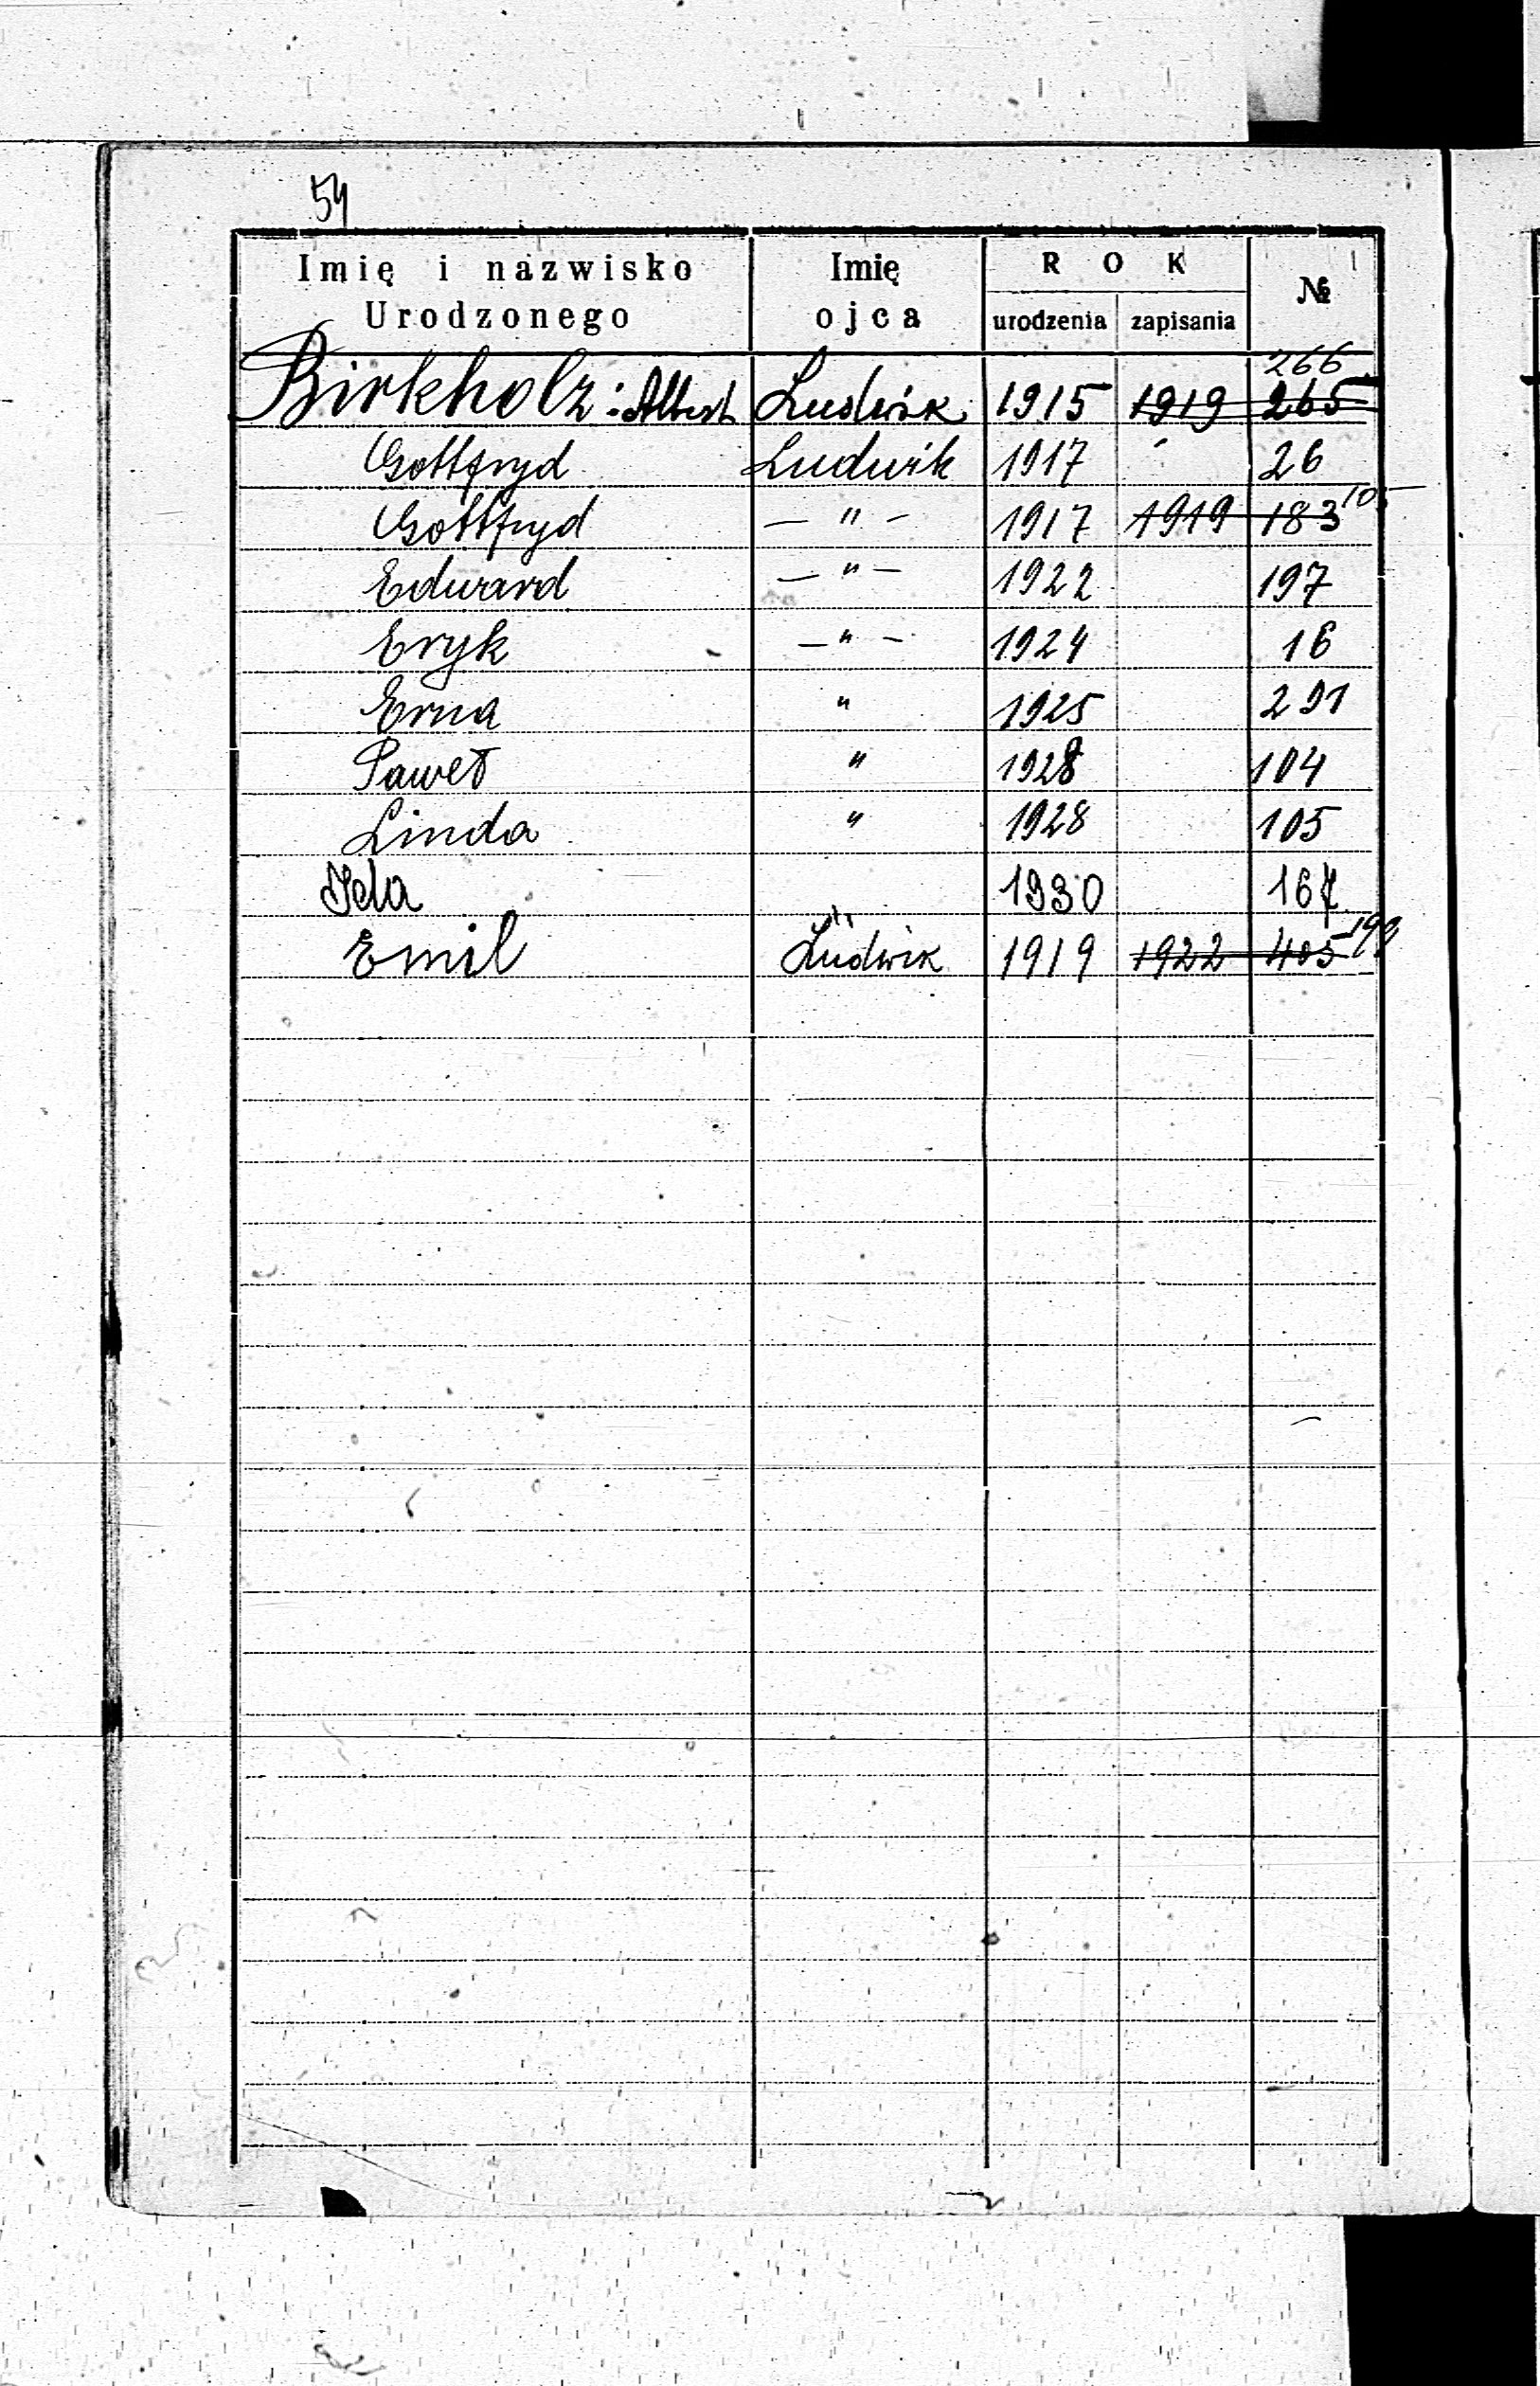 54
Imię i nazwisko Urodzonego Imię ojca ROK urodzenia zapisania №
266
Birkholz: Albert Ludwik 1915 1919 265
Gottfryd Ludwik 1917 26
Gottfryd — " — 1917 1919 183 105
Edward — " — 1922 197
Eryk — " — 1924 16
Erna " 1925 291
Paweł " 1928 104
Linda " 1928 105
Ida 1930 167
Emil Ludwik 1919 1922 405